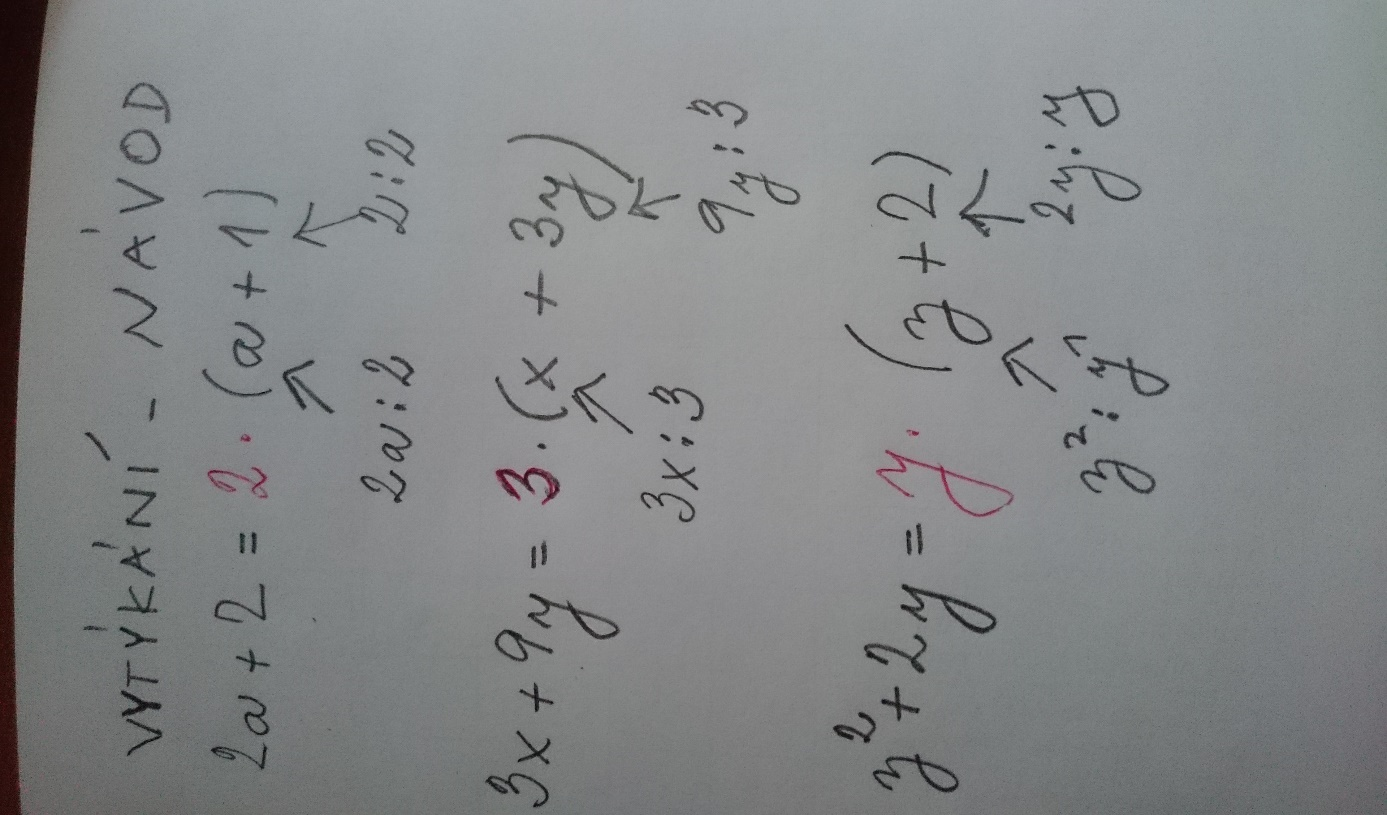 VYTÝKÁNÍ - NÁVOD
2a + 2 = 2 · (a + 1)
2a : 2 2 : 2
3x + 9y = 3 · (x + 3y)
3x : 3 9y : 3
y² + 2y = y · (y + 2)
y² : y¹ 2y : y